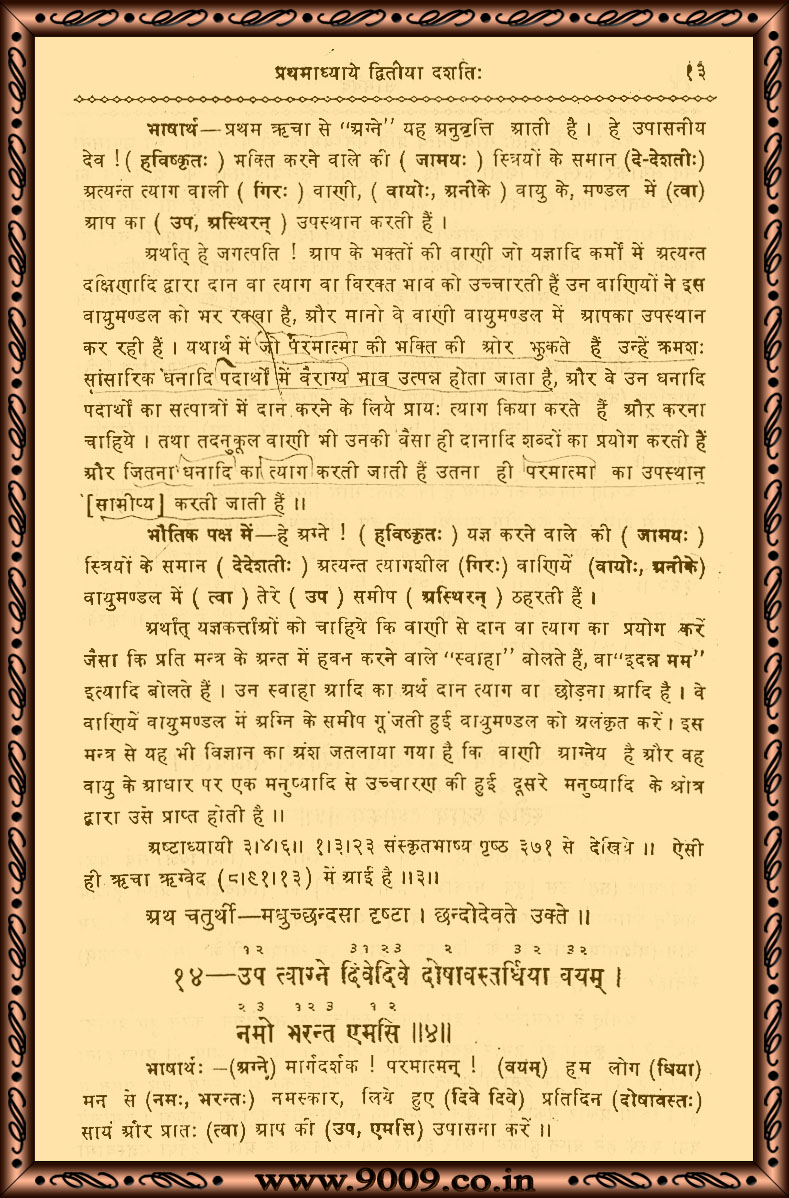 प्रथमाध्याये द्वितीया दशतिः १३
भाषार्थ—प्रथम ऋचा से “अग्ने” यह अनुवृत्ति आती है । हे उपासनीय
देव ! ( हविष्कृतः ) भक्ति करने वाले की ( जामयः ) स्त्रियों के समान (दे-देशतीः)
अत्यन्त त्याग वाली ( गिरः ) वाणी, ( वायोः, अनीके ) वायु के, मण्डल में (त्वा)
आप का ( उप, अस्थिरन् ) उपस्थान करती हैं ।
अर्थात् हे जगत्पति ! आप के भक्तों की वाणी जो यज्ञादि कर्मों में अत्यन्त
दक्षिणादि द्वारा दान वा त्याग वा विरक्त भाव को उच्चारती हैं उन वाणियों ने इस
वायुमण्डल को भर रक्खा है, और मानो वे वाणी वायुमण्डल में आपका उपस्थान
कर रही हैं । यथार्थ में जो परमात्मा की भक्ति की ओर झुकते हैं उन्हें क्रमशः
सांसारिक धनादि पदार्थों में वैराग्य भाव उत्पन्न होता जाता है, और वे उन धनादि
पदार्थों का सत्पात्रों में दान करने के लिये प्रायः त्याग किया करते हैं और करना
चाहिये । तथा तदनुकूल वाणी भी उनकी वैसा ही दानादि शब्दों का प्रयोग करती हैं
और जितना धनादि का त्याग करती जाती हैं उतना ही परमात्मा का उपस्थान
[सामीप्य] करती जाती हैं ।।
भौतिक पक्ष में—हे अग्ने ! ( हविष्कृतः ) यज्ञ करने वाले की ( जामयः )
स्त्रियों के समान ( देदेशतीः ) अत्यन्त त्यागशील (गिरः) वाणियें (वायोः, अनीके)
वायुमण्डल में ( त्वा ) तेरे ( उप ) समीप ( अस्थिरन् ) ठहरती हैं ।
अर्थात् यज्ञकर्त्ताओं को चाहिये कि वाणी से दान वा त्याग का प्रयोग करें
जैसा कि प्रति मन्त्र के अन्त में हवन करने वाले “स्वाहा” बोलते हैं, वा “इदन्न मम”
इत्यादि बोलते हैं । उन स्वाहा आदि का अर्थ दान त्याग वा छोड़ना आदि है । वे
वाणियें वायुमण्डल में अग्नि के समीप गूंजती हुई वायुमण्डल को अलंकृत करें । इस
मन्त्र से यह भी विज्ञान का अंश जतलाया गया है कि वाणी आग्नेय है और वह
वायु के आधार पर एक मनुष्यादि से उच्चारण की हुई दूसरे मनुष्यादि के श्रोत्र
द्वारा उसे प्राप्त होती है ।।
अष्टाध्यायी ३।४।६।। १।३।२३ संस्कृतभाष्य पृष्ठ ३७१ से देखिये ।। ऐसी
ही ऋचा ऋग्वेद (८।९१।१३) में आई है ।।३।।
अथ चतुर्थी—मधुच्छन्दसा दृष्टा । छन्दोदेवते उक्ते ।।
१२ ३१ २३ २ ३ २ ३२
१४—उप त्वाग्ने दिवेदिवे दोषावस्तर्धिया वयम् ।
२ ३ १२ ३ १ २
नमो भरन्त एमसि ।।४।।
भाषार्थः —(अग्ने) मार्गदर्शक ! परमात्मन् ! (वयम्) हम लोग (धिया)
मन से (नमः, भरन्तः) नमस्कार, लिये हुए (दिवे दिवे) प्रतिदिन (दोषावस्तः)
सायं और प्रातः (त्वा) आप की (उप, एमसि) उपासना करें ।।
www.9009.co.in